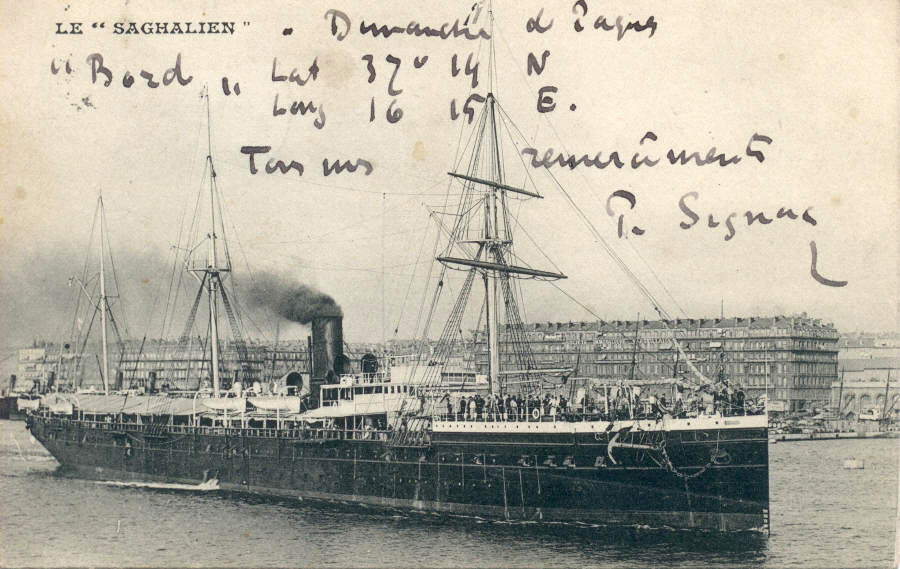 LE "SAGHALIEN" " Dimanche d Pâques
"Bord" Lat 37° 14 N
Long 16 15 E.
Tous nos remerciements
P. Signac